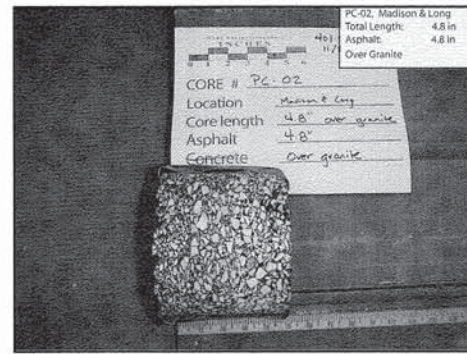 PC-02, Madison & Long
Total Length: 4.8 in
Asphalt: 4.8 in
Over Granite
INCHES
0 1 2 3 4 5 6
CORE # PC-02
Location Madison & Long
Core length 4.8" over granite
Asphalt 4.8"
Concrete Over granite